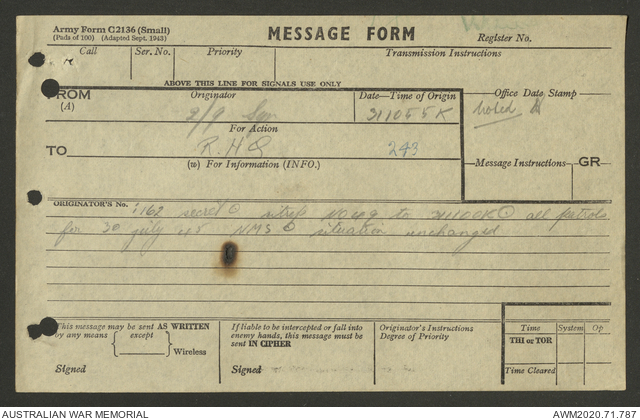 Army Form C2136 (Small)
(Pads of 100) (Adapted Sept. 1943)
MESSAGE FORM
Register No.
Call
Ser. No.
Priority
Transmission Instructions
ABOVE THIS LINE FOR SIGNALS USE ONLY
FROM
(A)
Originator
Date—Time of Origin
Office Date Stamp
2/9
311055K
Noted
For Action
TO
R.H.Q
243
(W) For Information (INFO.)
Message Instructions
GR
ORIGINATOR'S No. 1162 secret sitrep No 49 to 311100K all patrols
for 30 july NMS situation unchanged
This message may be sent AS WRITTEN
by any means except
Wireless
Signed
If liable to be intercepted or fall into
enemy hands, this message must be
sent IN CIPHER
Signed
Originator's Instructions
Degree of Priority
Time
System
Op
THI or TOR
Time Cleared
AUSTRALIAN WAR MEMORIAL
AWM2020.71.787